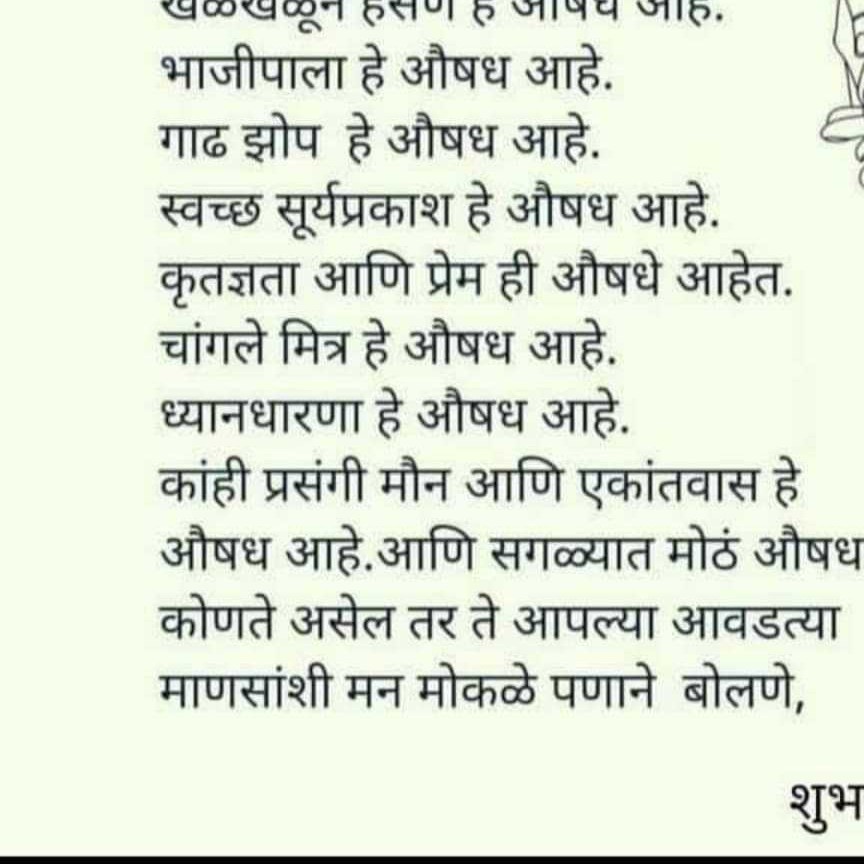 खळखळून हसणे हे औषध आहे.
भाजीपाला हे औषध आहे.
गाढ झोप हे औषध आहे.
स्वच्छ सूर्यप्रकाश हे औषध आहे.
कृतज्ञता आणि प्रेम ही औषधे आहेत.
चांगले मित्र हे औषध आहे.
ध्यानधारणा हे औषध आहे.
कांही प्रसंगी मौन आणि एकांतवास हे
औषध आहे.आणि सगळ्यात मोठं औषध
कोणते असेल तर ते आपल्या आवडत्या
माणसांशी मन मोकळे पणाने बोलणे,
शुभ